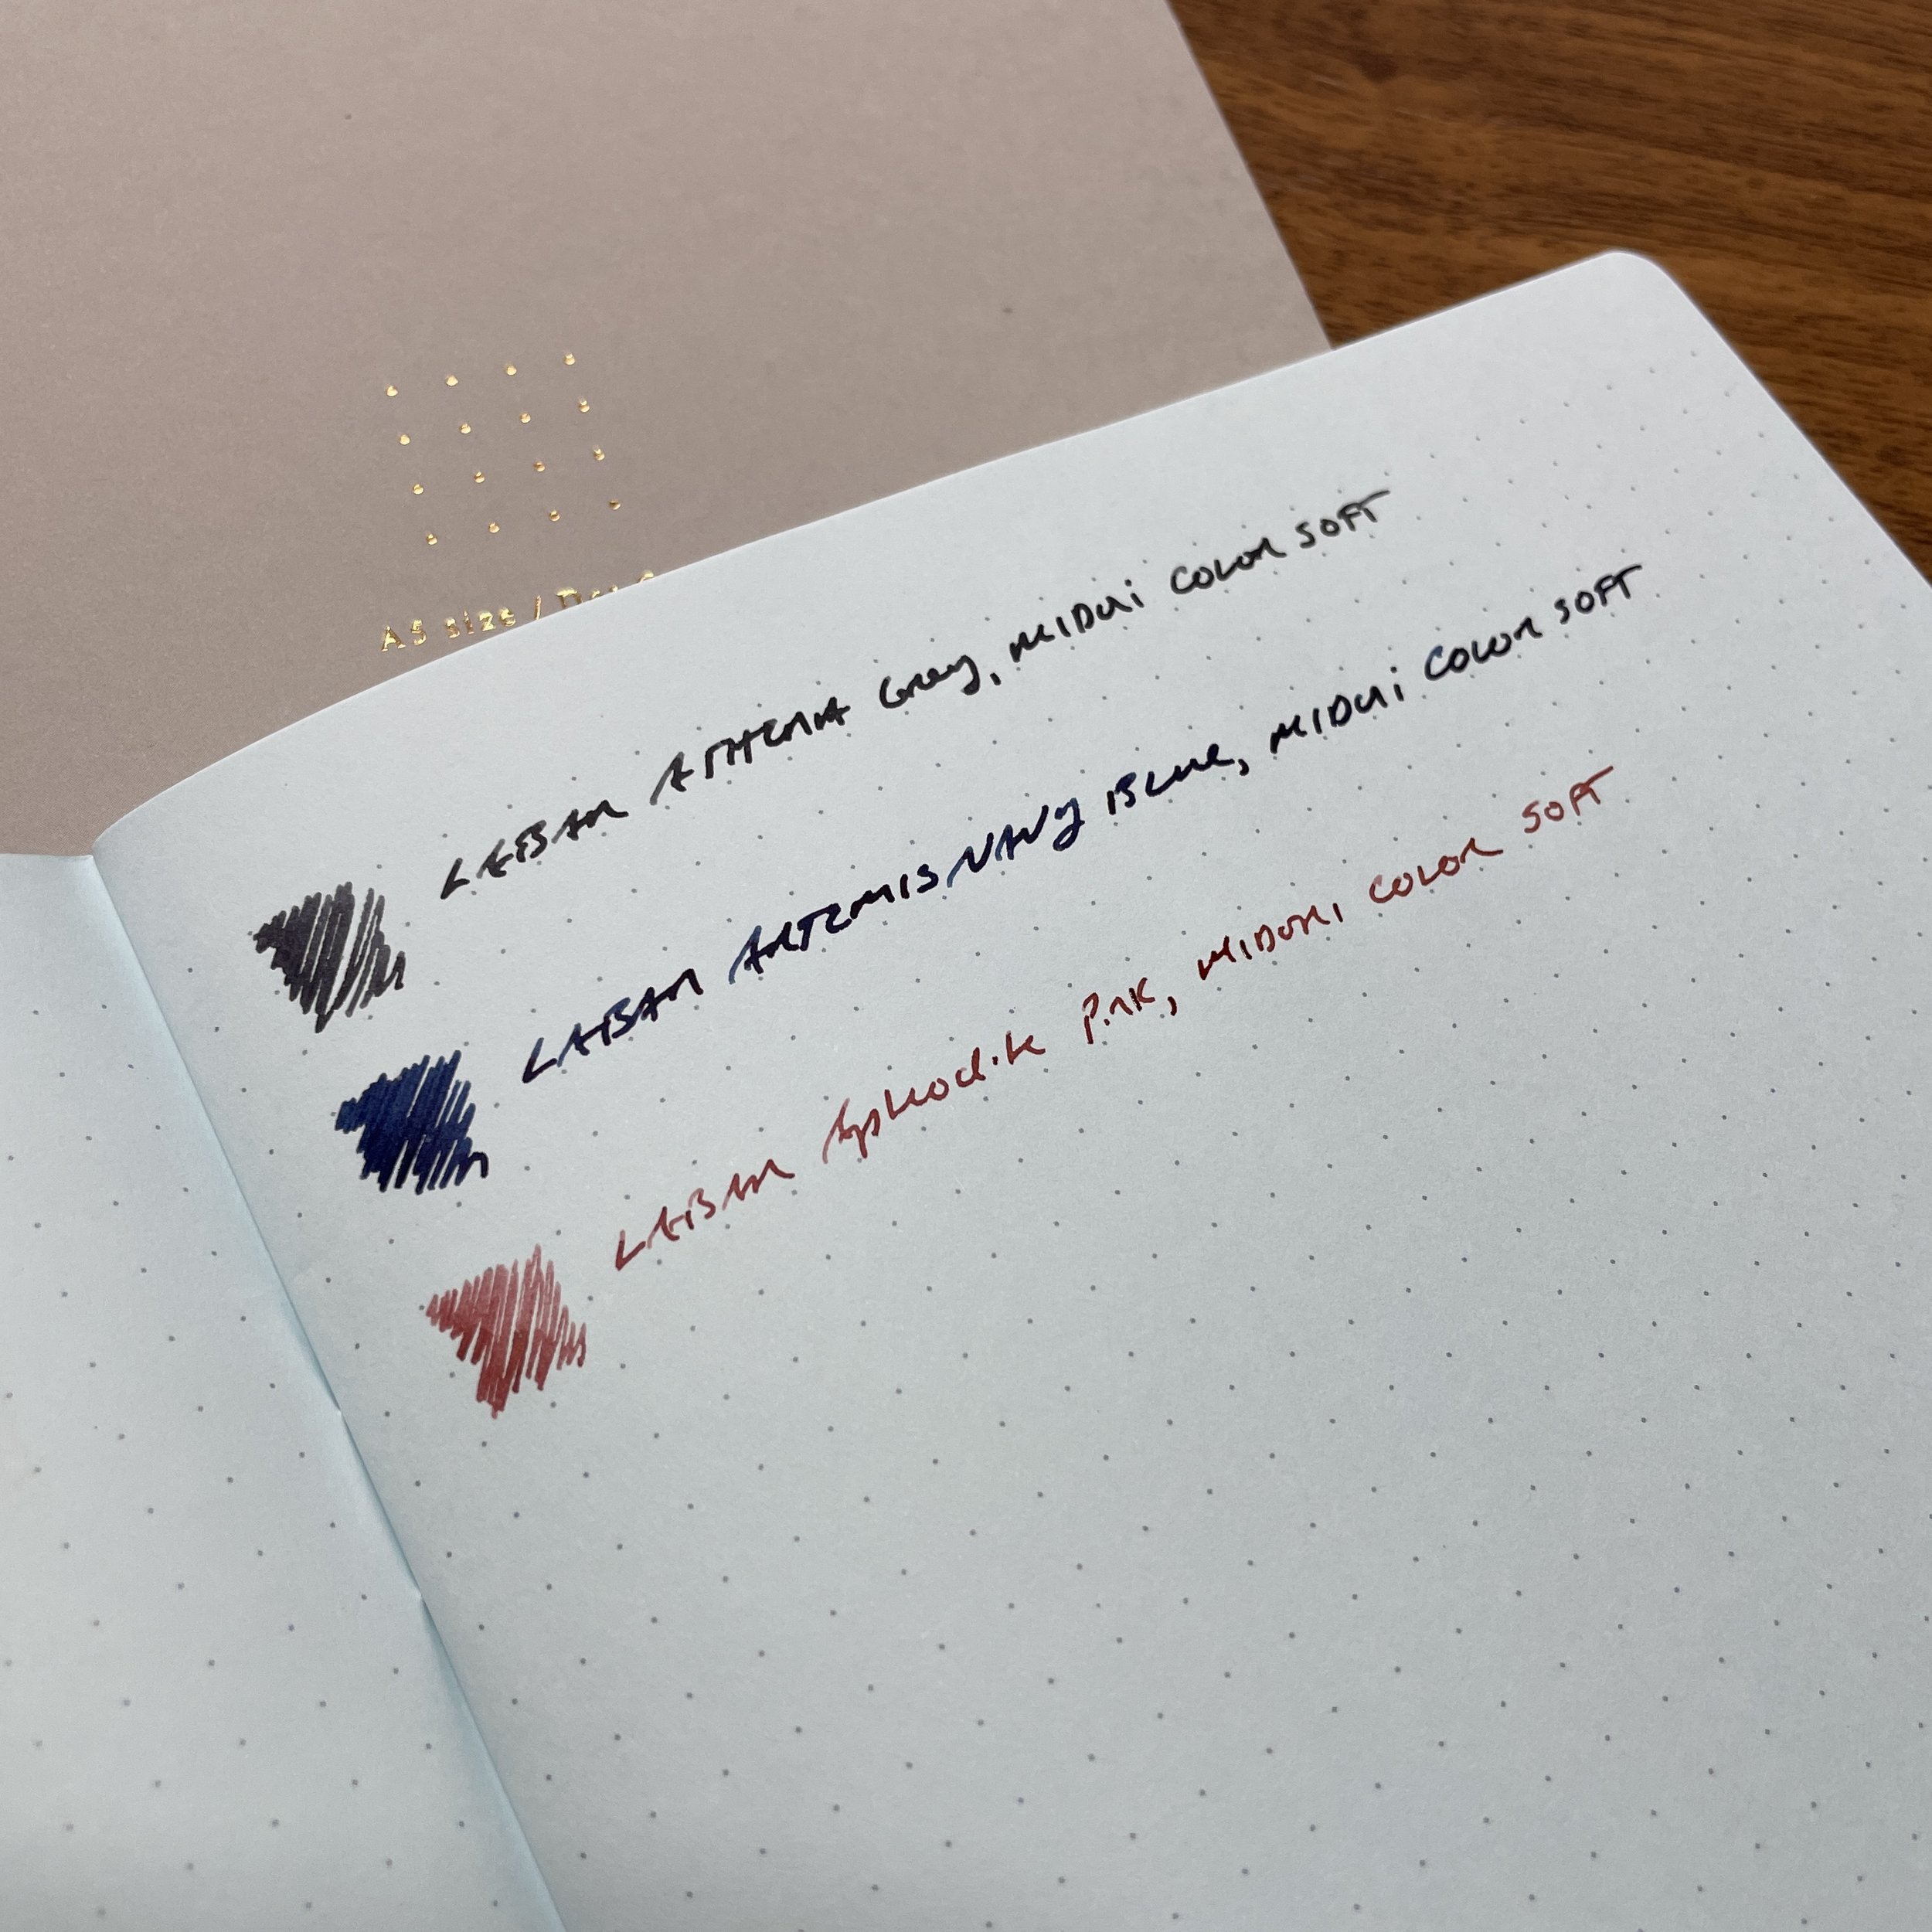 A5 size / Dot
LABAN ATHENA Gray, MIDORI COLOR SOFT
LABAN ARTEMIS NAVY BLUE, MIDORI COLOR SOFT
LABAN Aphrodite Pink, MIDORI COLOR SOFT